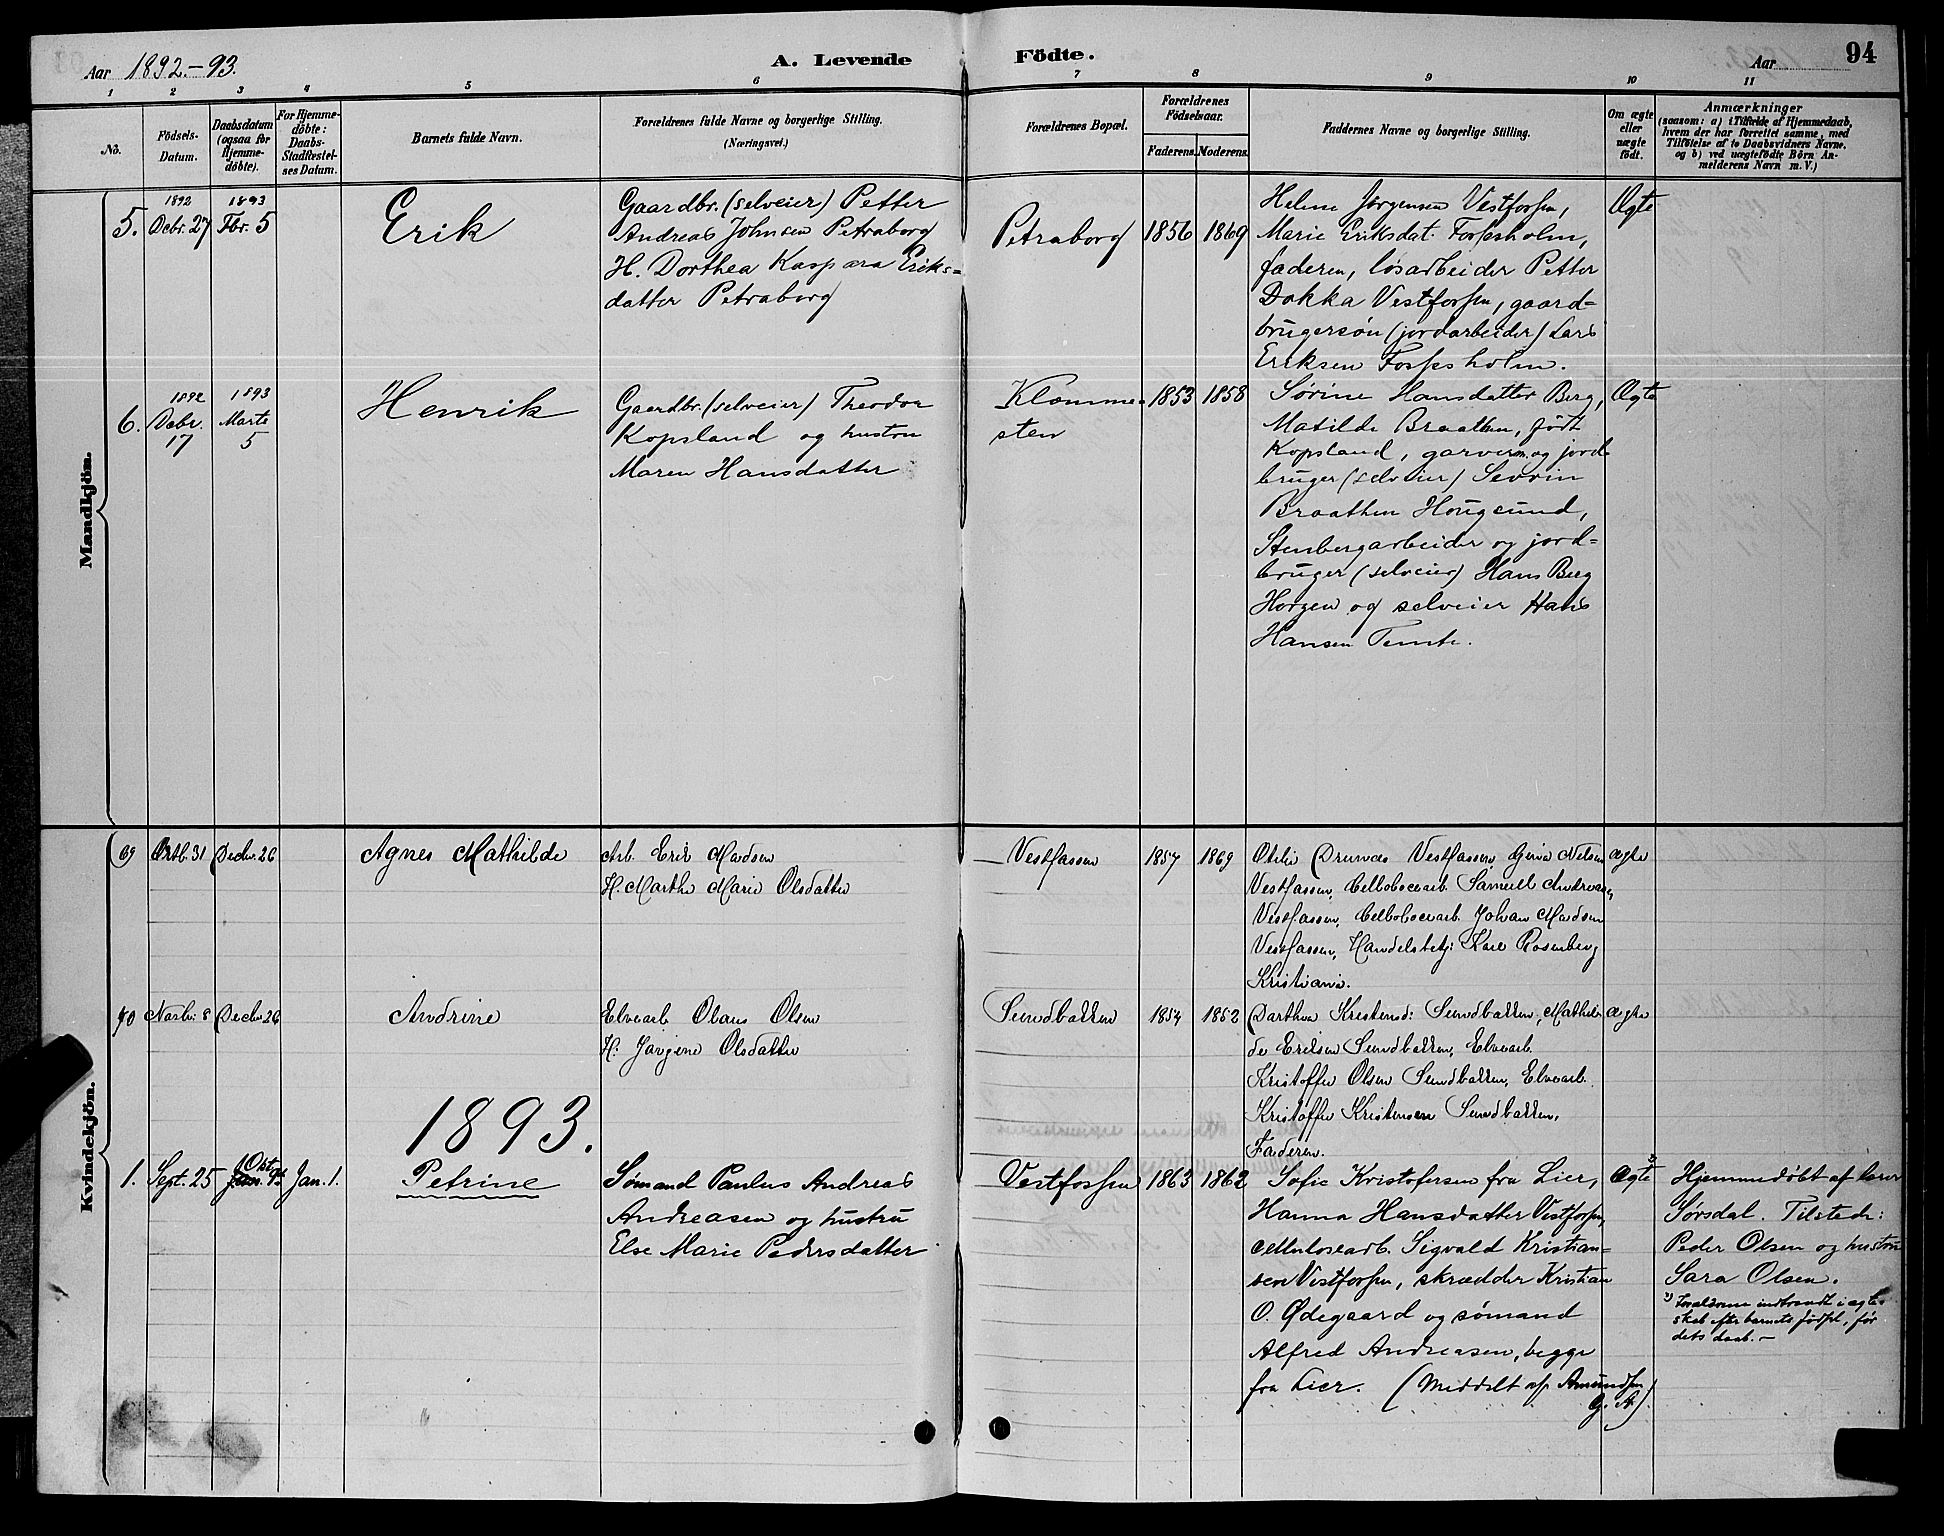 Aar 1892.-93.
A. Levende Födte.
Aar 94
1 2 3 4 5 6 7 8 9 10 11
No.
Födsels-Datum.
Daabsdatum (ogsaa for Hjemme-döbte).
For Hjemme-döbte: Daabs-Stadfæstel-ses Datum.
Barnets fulde Navn.
Forældrenes fulde Navne og borgerlige Stilling.
(Næringsvei.)
Forældrenes Bopæl.
Forældrenes Födselsaar.
Faderens. Moderens.
Faddernes Navne og borgerlige Stilling.
Om ægte eller uægte födt.
Anmærkninger
(saasom: a) i Tilfælde af Hjemmedaab, hvem der har forrettet samme, med Tilföielse af to Daabsvidners Navne, og b) ved uægtefödte Börn An-melderens Navn m. V.)
Mandkjön.
5. 1892 Debr. 27 1893 Fbr. 5
Erik
Gaardbr. (selveier) Petter
Andreas Johnsen Petraborg
H. Dorthea Kaspara Eriks=
datter Petraborg
Petraborg 1856 1869
Helene Jørgensen Vestfossen,
Marie Eriksdat. Fossesholm,
faderen, løsarbeider Petter
Dokka Vestfossen, gaard=
brugersøn (jordarbeider) Lars
Eriksen Fossesholm.
Ægte
6. 1892 Debr. 17 1893 Marts 5
Henrik
Gaardbr. (selveier) Theodor
Kopsland og hustru
Maren Hansdatter
Klomme=
sten
1853 1858
Sørine Hansdatter Berg,
Matilde Braathen, født
Kopsland, garver og jord=
bruger (selveier) Sevrin
Braathen Hougsund,
Stenbergarbeider og jord=
bruger (selveier) Hans Berg
Horgen og selveier Hans
Hansen Temte.
Ægte
Kvindekjön.
69 Octb. 31 Decbr. 26
Agnes Mathilde
Arb. Erik Madsen
H. Marthe Marie Olsdatter
Vestfossen 1857 1869
Otilie Vestfossen, Gina Nilsen
Vestfossen, Celloloсearb. Samuel Andreas,
Vestfossen, Cellolocearb. Johan Madsen
Vestfossen, Handelsbetj: Karl Rosenberg
Kristiania.
Ægte
70 Novbr. 8 Decbr. 26
Andrine
Elvearb Olaus Olsen
H: Jørgine Olsdatter
Sundbakken 1854 1852
Dorthea Kristensd: Sundbakken, Mathil=
de Eriksen Sundbakken, Elvearb.
Kristoffer Olsen Sundbakken, Elvearb.
Kristoffer Kristensen Sundbakken,
Faderen.
Ægte
1893.
1. Sept. 25 Okt. 9. Jan. 1.
Petrine
Sømand Paulus Andreas
Andreasen og hustru
Else Marie Pedersdatter
Vestfossen 1863 1862
Sofie Kristofersen fra Lier,
Hanna Hansdatter Vestfossen,
cellulosearb. Sigvald Kristian=
sen Vestfossen, skrædder Kristian
O. Ødegaard og sømand
Alfred Andreasen, begge
fra Lier. (Meddelt af Amundsen G. A.)
Ægte
Hjemmedøbt af lærer
Sørsdal. Tilstede:
Peder Olsen og hustru
Sara Olsen.
Forældrene indtraadt i ægte=
skab efter barnets fødsel, før
dets daab.—